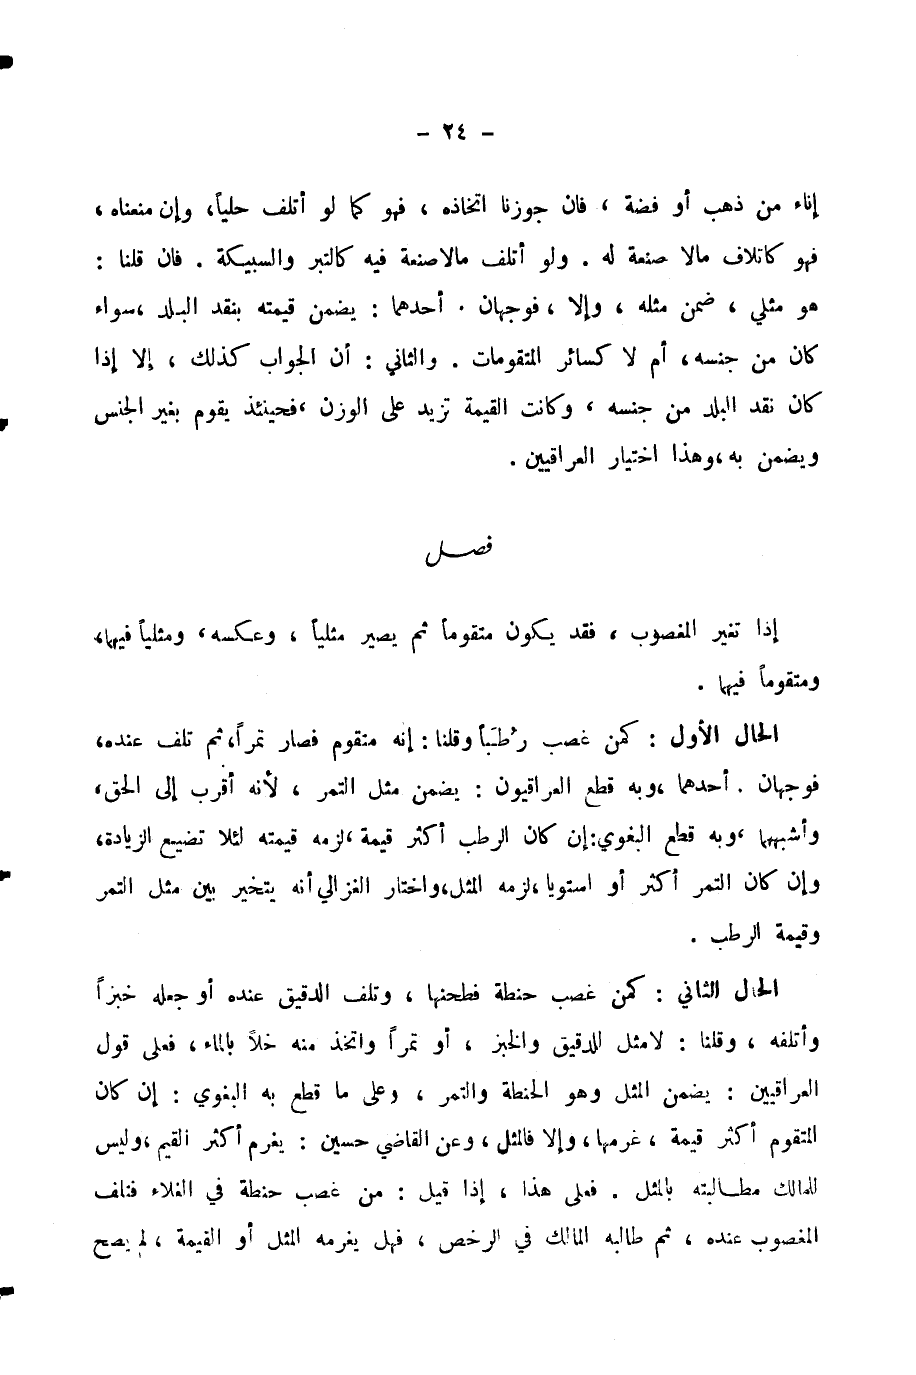 - ٢٤ -
إناء من ذهب أو فضة ، فان جوزنا اتخاذه ، فهو كما لو أتلف حلياً، وإن منعناه ،
فهو كاتلاف مالا صنعة له . ولو أتلف مالاصنعة فيه كالتبر والسبيكة . فان قلنا :
هو مثلي ، ضمن مثله ، وإلا ، فوجهان . أحدهما : يضمن قيمته بنقد البلد ،سواء
كان من جنسه، أم لا كسائر المتقومات . والثاني : أن الجواب كذلك ، إلا إذا
كان نقد البلد من جنسه ، وكانت القيمة تزيد على الوزن ،فحينئذ يقوم بغير الجنس
ويضمن به،وهذا اختيار العراقيين .
فصل
إذا تغير المغصوب ، فقد يكون متقوماً ثم يصير مثلياً ، وعكسه، ومثلياً فيهما،
ومتقوماً فيها .
الحال الأول : كمن غصب رُطَباً وقلنا : إنه متقوم فصار تمراً،ثم تلف عنده،
فوجهان . أحدهما ،وبه قطع العراقيون : يضمن مثل التمر ، لأنه أقرب إلى الحق،
وأشبهها ،وبه قطع البغوي:إن كان الرطب أكثر قيمة ،لزمه قيمته لئلا تضيع الزيادة،
وإن كان التمر أكثر أو استويا ،لزمه المثل،واختار الغزالي أنه يتخير بين مثل التمر
وقيمة الرطب .
الحال الثاني : كمن غصب حنطة فطحنها ، وتلف الدقيق عنده أو جعله خبزاً
وأتلفه ، وقلنا : لامثل للدقيق والخبز ، أو تمراً واتخذ منه خلاً بالماء ، فعلى قول
العراقيين : يضمن المثل وهو الحنطة والتمر ، وعلى ما قطع به البغوي : إن كان
المتقوم أكثر قيمة ، غرمها ، وإلا فالمثل ، وعن القاضي حسين : يغرم أكثر القيم ،وليس
للمالك مطالبته بالمثل . فعلى هذا ، إذا قيل : من غصب حنطة في الغلاء فتلف
المغصوب عنده ، ثم طالبه المالك في الرخص ، فهل يغرمه المثل أو القيمة ، لم يصح